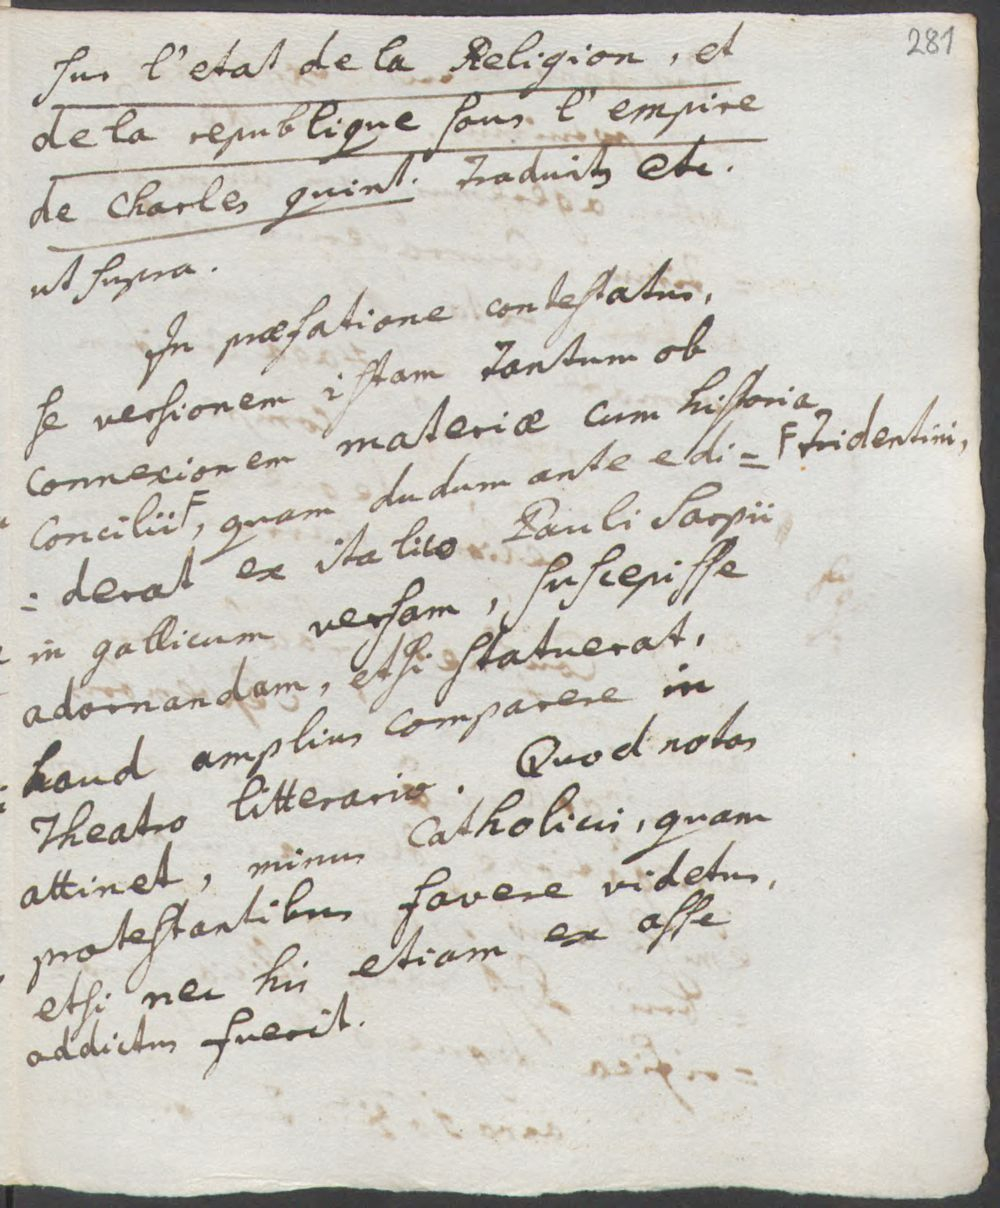 281
sur l'etat de la Religion, et
de la republique sous l'empire
de Charles quint. traduits etc.
ut supra.
In præfatione contestatur,
se versionem istam tantum ob
connexionem materiæ cum historia
Concilii F, quam dudum ante edi= F Tridentini,
=derat ex italico Pauli Sarpii
in gallicum versam, suscepisse
adornandam, etsi statuerat,
haud amplius comparere in
Theatro litterario. Quod notas
attinet, minus Catholicis, quam
protestantibus favere videtur,
etsi nec his etiam ex asse
addictus fuerit.